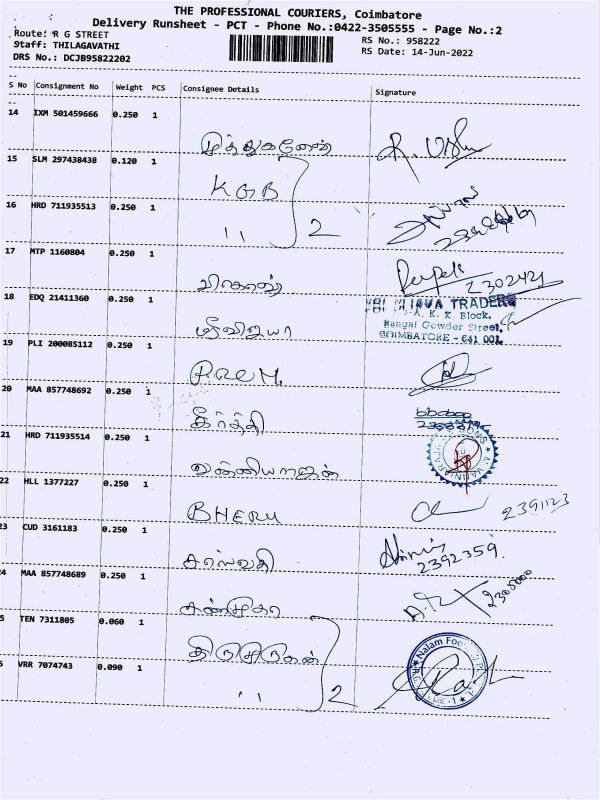 THE PROFESSIONAL COURIERS, Coimbatore
Delivery Runsheet - PCT - Phone No.:0422-3505555 - Page No.:2
Route: R G STREET
RS No.: 958222
Staff: THILAGAVATHI
RS Date: 14-Jun-2022
DRS No.: DCJB95822202
S No Consignment No Weight PCS Consignee Details Signature
14 IXM 501459666 0.250 1
முத்துகணேஷ்
15 SLM 297438438 0.120 1
KGB
16 HRD 711935513 0.250 1
11 2
17 MTP 1160804 0.250 1
விகாஷ் 2302421
18 EDQ 21411360 0.250 1
JAYA TRADERS
A. K. K. Block.
Rangai Gowder Street,
COIMBATORE - 641 001.
ஸ்ரீவிஜயா
19 PLI 200085112 0.250 1
PREM.
20 MAA 857748692 0.250 1
கீர்த்தி
21 HRD 711935514 0.250 1
வன்னியராஜன்
22 HLL 1377227 0.250 1
BHERU 2391123
23 CUD 3161183 0.250 1
சரஸ்வதி 2392359.
24 MAA 857748689 0.250 1
சண்முகா
5 TEN 7311805 0.060 1
திருமுருகன்
6 VRR 7074743 0.090 1
11 2
Nalam Foo